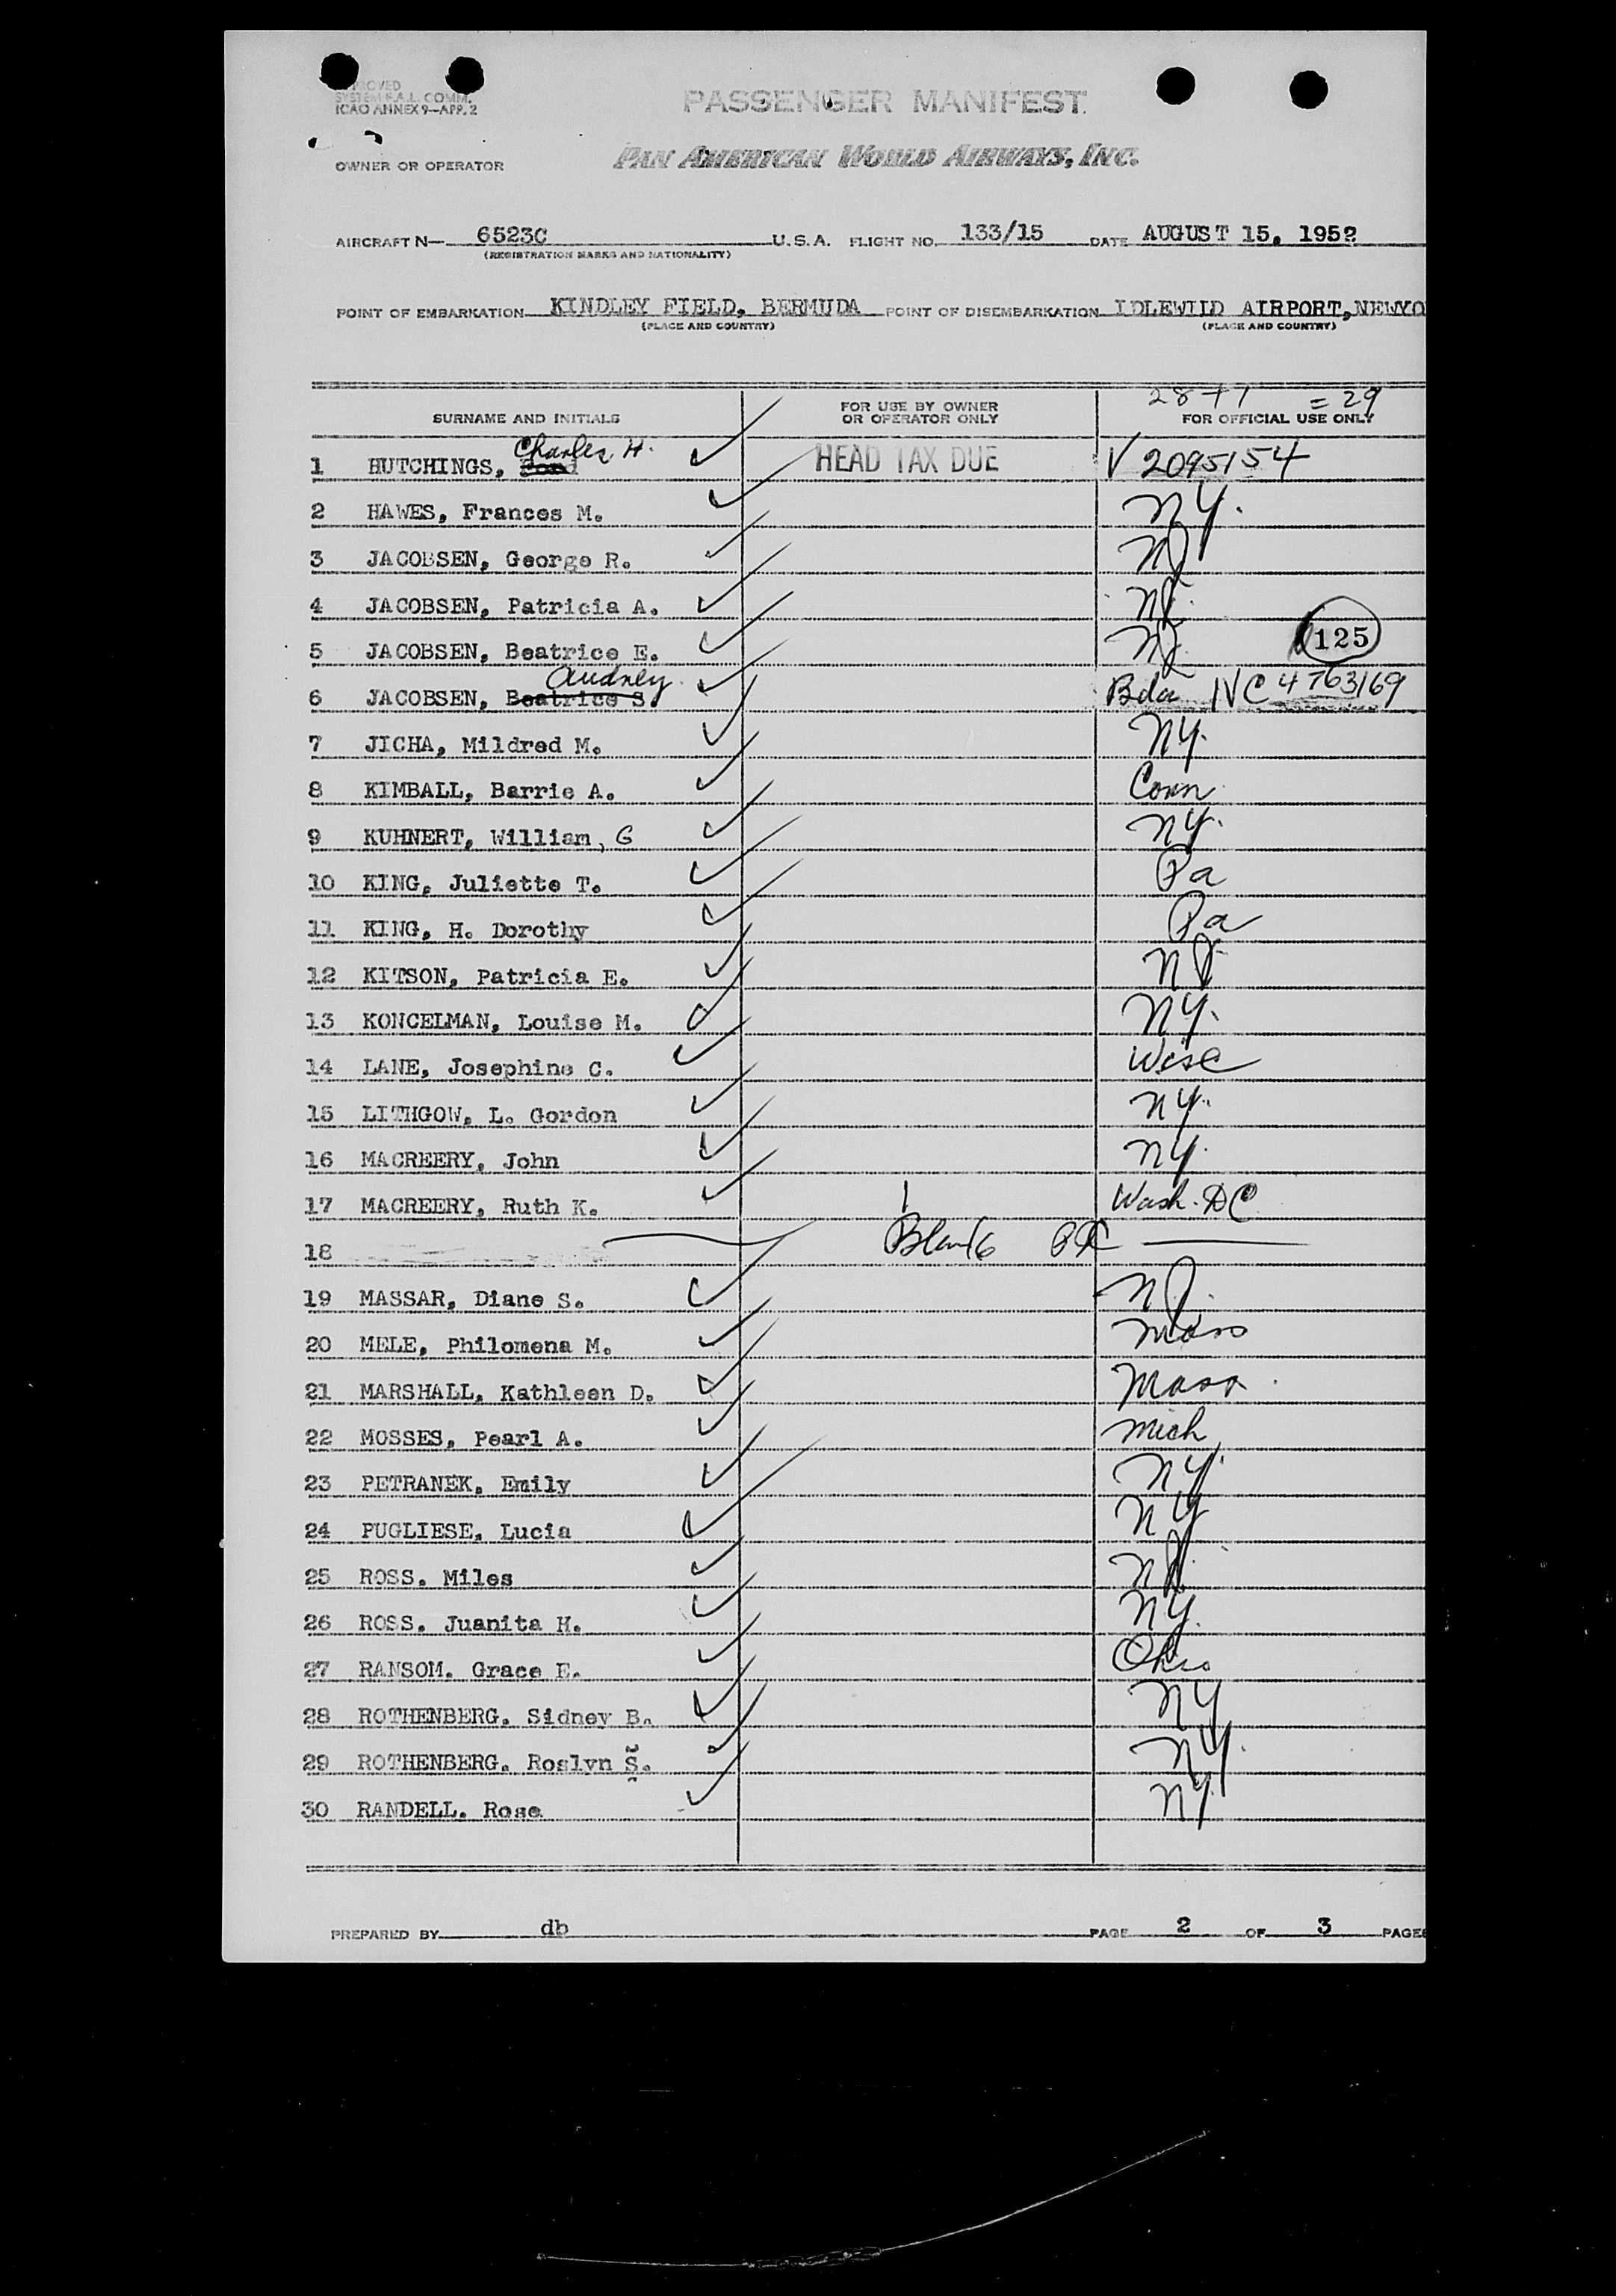 PROVED
SYSTEM F.A.L. COMM.
ICAO ANNEX 9—APP. 2
PASSENGER MANIFEST
OWNER OR OPERATOR PAN AMERICAN WORLD AIRWAYS, INC.
AIRCRAFT N— 6523C U.S.A. FLIGHT NO. 133/15 DATE AUGUST 15, 1952
(REGISTRATION MARKS AND NATIONALITY)
POINT OF EMBARKATION KINDLEY FIELD, BERMUDA POINT OF DISEMBARKATION IDLEWIID AIRPORT, NEWYO
(PLACE AND COUNTRY) (PLACE AND COUNTRY)
28 + 1 = 29
SURNAME AND INITIALS FOR USE BY OWNER OR OPERATOR ONLY FOR OFFICIAL USE ONLY
Charles H.
1 HUTCHINGS, HEAD TAX DUE V 2095154
2 HAWES, Frances M. NY.
3 JACOBSEN, George R. NJ
4 JACOBSEN, Patricia A. NJ.
5 JACOBSEN, Beatrice E. NJ. 125
Audrey
6 JACOBSEN, Beatrice S. Bda NC 4763169
7 JICHA, Mildred M. NY.
8 KIMBALL, Barrie A. Conn
9 KUHNERT, William, G NY.
10 KING, Juliette T. Pa
11 KING, H. Dorothy Pa
12 KITSON, Patricia E. NJ
13 KONCELMAN, Louise M. NY.
14 LANE, Josephine C. Wisc
15 LITHGOW, L. Gordon NY.
16 MACREERY, John NY.
17 MACREERY, Ruth K. Wash. DC
18 Blank
19 MASSAR, Diane S. NJ.
20 MELE, Philomena M. Mass
21 MARSHALL, Kathleen D. Mass.
22 MOSSES, Pearl A. Mich
23 PETRANEK, Emily NY.
24 PUGLIESE, Lucia NY
25 ROSS. Miles NJ.
26 ROSS. Juanita H. NY.
27 RANSOM. Grace E. Ohio
28 ROTHENBERG. Sidney B. NY
29 ROTHENBERG. Roslyn S. NY.
30 RANDELL. Rose NY
PREPARED BY db PAGE 2 OF 3 PAGES